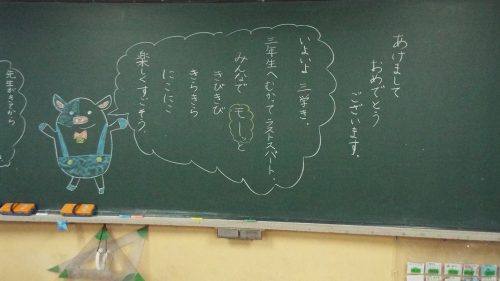 あけまして
おめでとう
ございます。
いよいよ三学き。
三年生へむかってラストスパート。
みんなで モーっと
きびきび
きらきら
にこにこ
楽しくすごそう。
先生がきてから